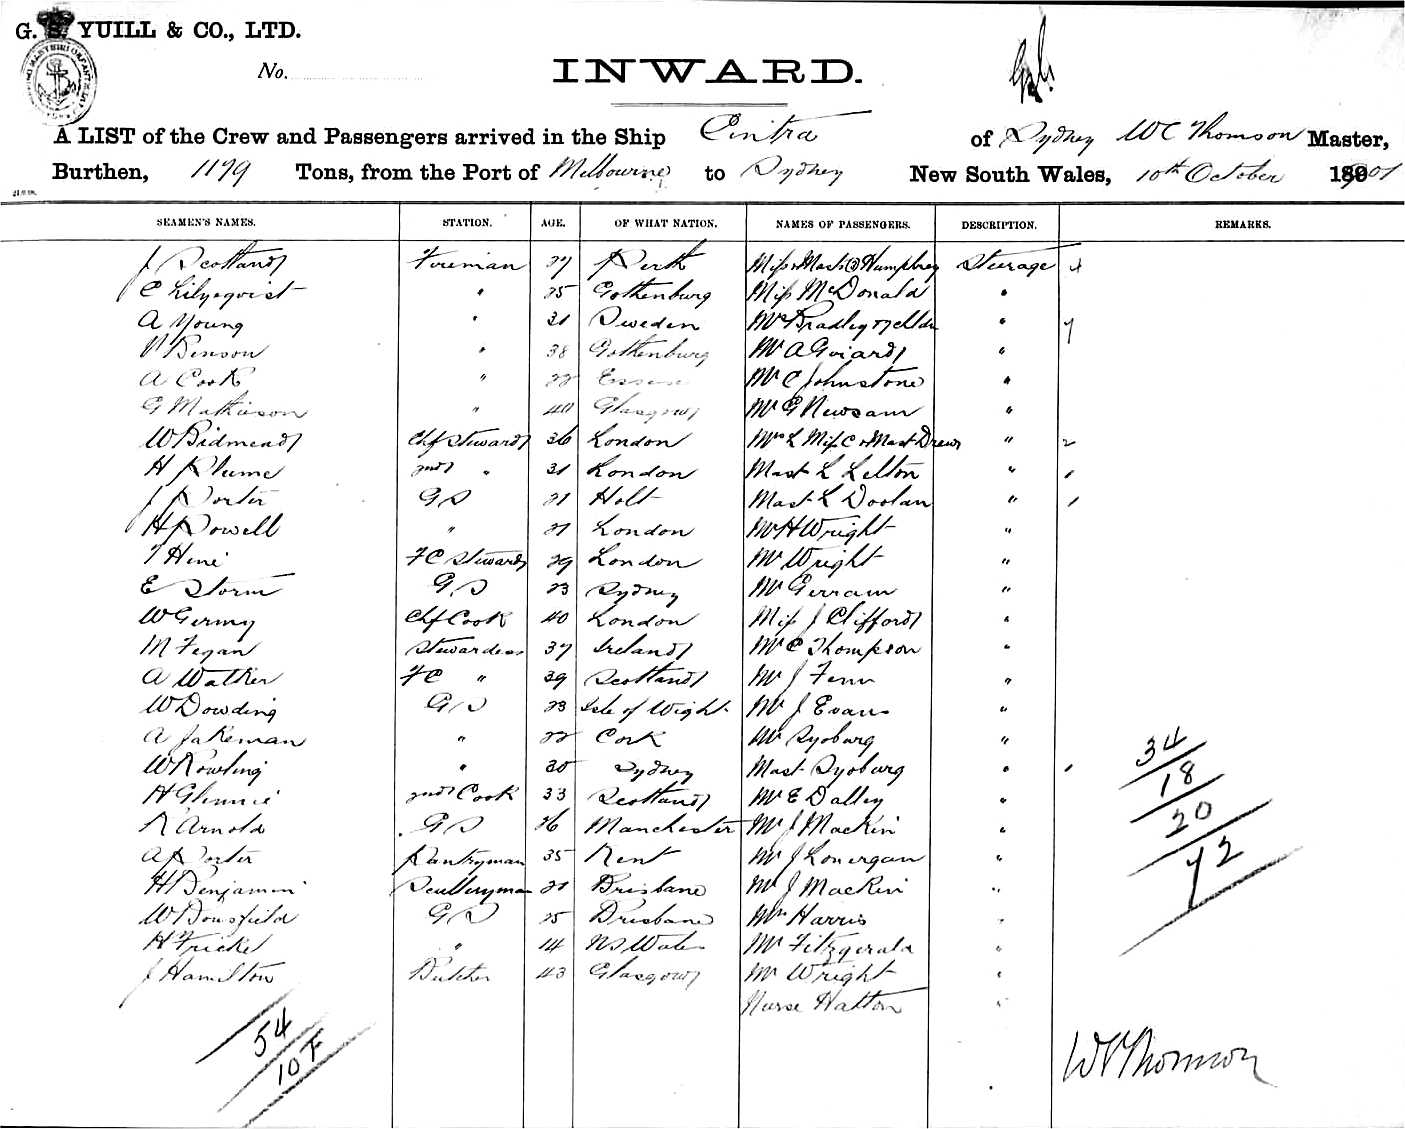 G. S. YUILL & CO., LTD.
No.
INWARD.
A LIST of the Crew and Passengers arrived in the Ship Cintra of Sydney W C Thomson Master,
Burthen, 1179 Tons, from the Port of Melbourne to Sydney New South Wales, 10th October 1901
SEAMEN'S NAMES. STATION. AGE. OF WHAT NATION. NAMES OF PASSENGERS. DESCRIPTION. REMARKS.
J Scotland Fireman 27 Perth Miss & Mast Humphrey Steerage
C Lilyeqvist " 25 Gothenburg Miss McDonald "
A Young " 31 Sweden Mr Bradley "
Benson " 38 Gothenburg Mr A Goiard "
A Cook " 22 Essen Mr C Johnstone "
G Mathieson " 40 Glasgow Mr G Newsam "
W Bidmead Chf Steward 36 London Mrs L Miss C & Mast Drew " 2
H Plume 2nd " 31 London Mast L Lelton " 1
J Porter G S 21 Holt Mast L Doolan " 1
H Powell " 21 London Mr H Wright "
T Hine F C Steward 29 London Mr Wright "
E Storm G S 23 Sydney Mr Gerram "
W Germy Chf Cook 40 London Miss J Clifford "
M Fegan Stewardess 37 Ireland Mr C Thompson "
A Walker F C " 39 Scotland Mr J Fenn "
W Dowding G S 23 Isle of Wight Mr J Evans "
A Jakeman " 22 Cork Mr Syoburg "
W Rowling " 30 Sydney Mast Syoburg " 1
H Glennie 2nd Cook 33 Scotland Mr E Dalley "
R Arnold G S 26 Manchester Mr J Mackin "
A Porter Pantryman 35 Kent Mr J Lonergan "
H Benjamin Sculleryman 21 Brisbane Mr J Mackin "
W Bousfield G S 25 Brisbane Mrs Harris "
H Fricke " 14 N S Wales Mr Fitzgerald "
J Hamilton Butcher 43 Glasgow Mr Wright "
Nurse Hatton "
34
18
20
72
54
10 F
W C Thomson